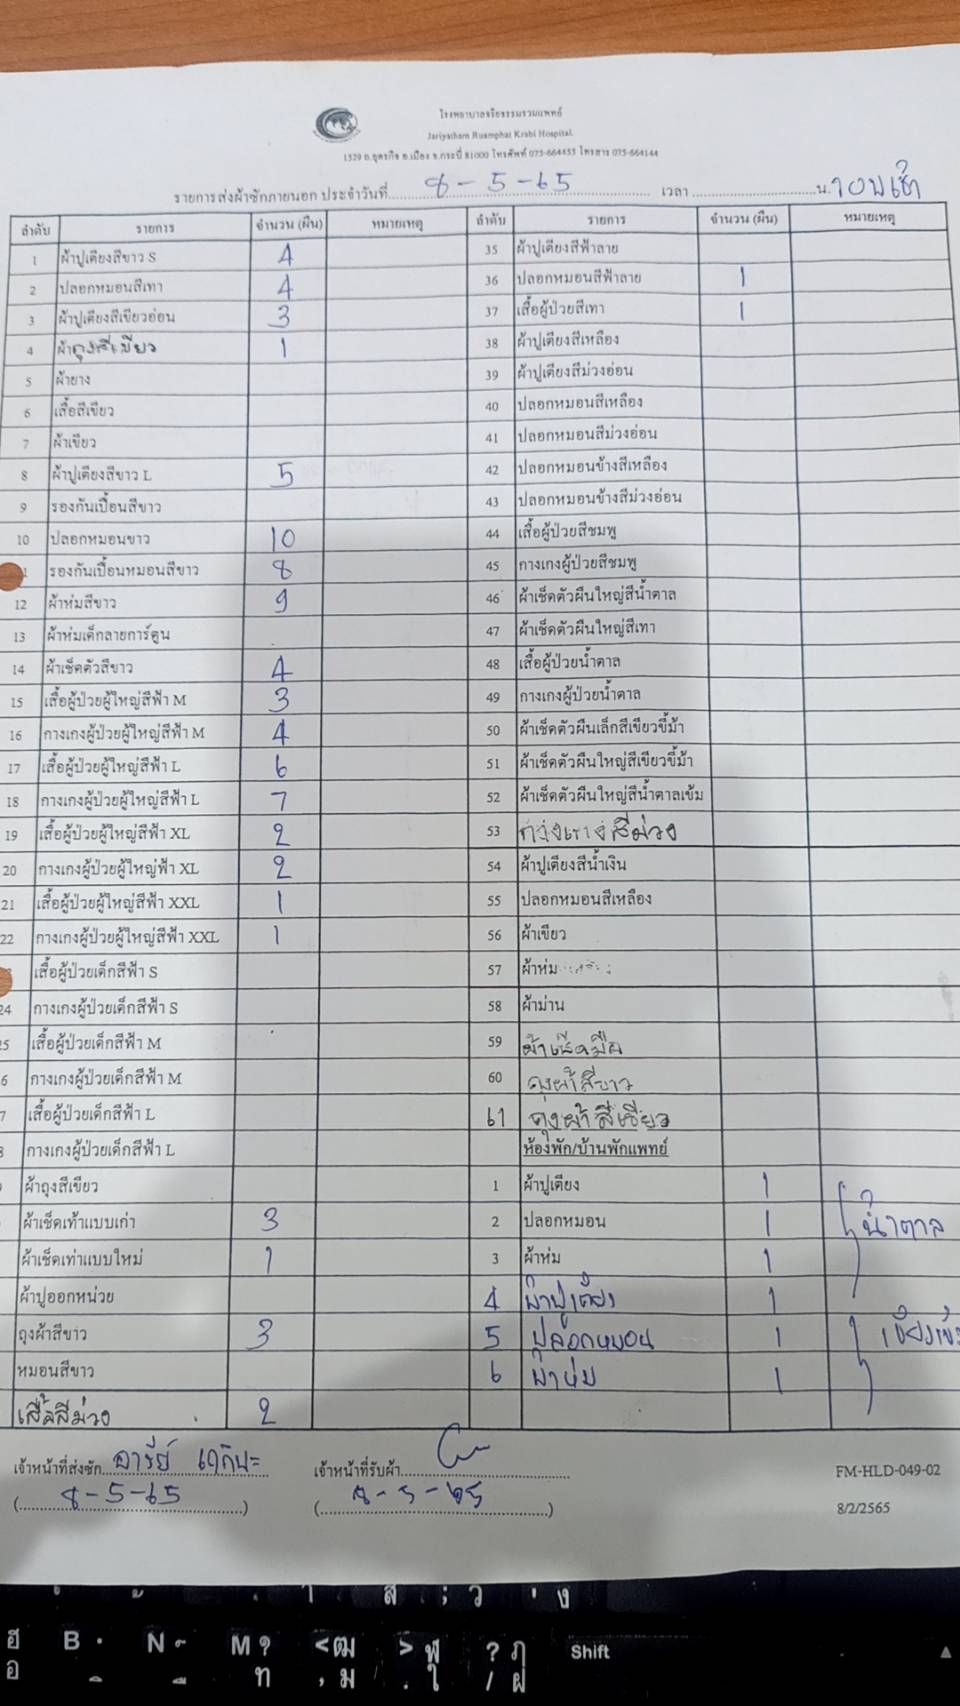 โรงพยาบาลจริยธรรมรวมแพทย์
Jariyatham Ruamphat Krabi Hospital.
1529 ถ.อุตรกิจ อ.เมือง จ.กระบี่ 81000 โทรศัพท์ 075-664455 โทรสาร 075-664144
รายการส่งผ้าซักภายนอก ประจำวันที่ 8-5-65 เวลา น.
ลำดับ รายการ จำนวน (ผืน) หมายเหตุ ลำดับ รายการ จำนวน (ผืน) หมายเหตุ
1 ผ้าปูเตียงสีขาว S 4 35 ผ้าปูเตียงสีฟ้าลาย
2 ปลอกหมอนสีเทา 4 36 ปลอกหมอนสีฟ้าลาย 1
3 ผ้าปูเตียงสีเขียวอ่อน 3 37 เสื้อผู้ป่วยสีเทา 1
4 ผ้าถุงสีเขียว 1 38 ผ้าปูเตียงสีเหลือง
5 ผ้ายาง 39 ผ้าปูเตียงสีม่วงอ่อน
6 เสื้อสีเขียว 40 ปลอกหมอนสีเหลือง
7 ผ้าเขียว 41 ปลอกหมอนสีม่วงอ่อน
8 ผ้าปูเตียงสีขาว L 5 42 ปลอกหมอนข้างสีเหลือง
9 รองกันเปื้อนสีขาว 43 ปลอกหมอนข้างสีม่วงอ่อน
10 ปลอกหมอนขาว 10 44 เสื้อผู้ป่วยสีชมพู
1 รองกันเปื้อนหมอนสีขาว 8 45 กางเกงผู้ป่วยสีชมพู
12 ผ้าห่มสีขาว 9 46 ผ้าเช็ดตัวผืนใหญ่สีน้ำตาล
13 ผ้าห่มเด็กลายการ์ตูน 47 ผ้าเช็ดตัวผืนใหญ่สีเทา
14 ผ้าเช็ดตัวสีขาว 4 48 เสื้อผู้ป่วยน้ำตาล
15 เสื้อผู้ป่วยผู้ใหญ่สีฟ้า M 3 49 กางเกงผู้ป่วยน้ำตาล
16 กางเกงผู้ป่วยผู้ใหญ่สีฟ้า M 4 50 ผ้าเช็ดตัวผืนเล็กสีเขียวขี้ม้า
17 เสื้อผู้ป่วยผู้ใหญ่สีฟ้า L 6 51 ผ้าเช็ดตัวผืนใหญ่สีเขียวขี้ม้า
18 กางเกงผู้ป่วยผู้ใหญ่สีฟ้า L 7 52 ผ้าเช็ดตัวผืนใหญ่สีน้ำตาลเข้ม
19 เสื้อผู้ป่วยผู้ใหญ่สีฟ้า XL 2 53 กางเกงสีม่วง
20 กางเกงผู้ป่วยผู้ใหญ่ฟ้า XL 2 54 ผ้าปูเตียงสีน้ำเงิน
21 เสื้อผู้ป่วยผู้ใหญ่สีฟ้า XXL 1 55 ปลอกหมอนสีเหลือง
22 กางเกงผู้ป่วยผู้ใหญ่สีฟ้า XXL 1 56 ผ้าเขียว
เสื้อผู้ป่วยเด็กสีฟ้า S 57 ผ้าห่ม
24 กางเกงผู้ป่วยเด็กสีฟ้า S 58 ผ้าม่าน
5 เสื้อผู้ป่วยเด็กสีฟ้า M 59 ผ้าเช็ดมือ
6 กางเกงผู้ป่วยเด็กสีฟ้า M 60 ถุงผ้าสีขาว
7 เสื้อผู้ป่วยเด็กสีฟ้า L 61 ถุงผ้าสีเขียว
กางเกงผู้ป่วยเด็กสีฟ้า L ห้องพัก/บ้านพักแพทย์
ผ้าถุงสีเขียว 1 ผ้าปูเตียง 1
ผ้าเช็ดเท้าแบบเก่า 3 2 ปลอกหมอน 1 น้ำตาล
ผ้าเช็ดเท่าแบบใหม่ 1 3 ผ้าห่ม 1
ผ้าปูออกหน่วย 4 ผ้าปูเตียง 1
ถุงผ้าสีขาว 3 5 ปลอกหมอน 1
หมอนสีขาว 6 ผ้าห่ม 1
เสื้อสีม่วง 2
เจ้าหน้าที่ส่งซัก อารีย์ เจ้าหน้าที่รับผ้า FM-HLD-049-02
(8-5-65) (8-5-65) 8/2/2565
B N M ท < ฒ , ม > ฬ . ใ ? ฦ / ฝ Shift
ฮ อ